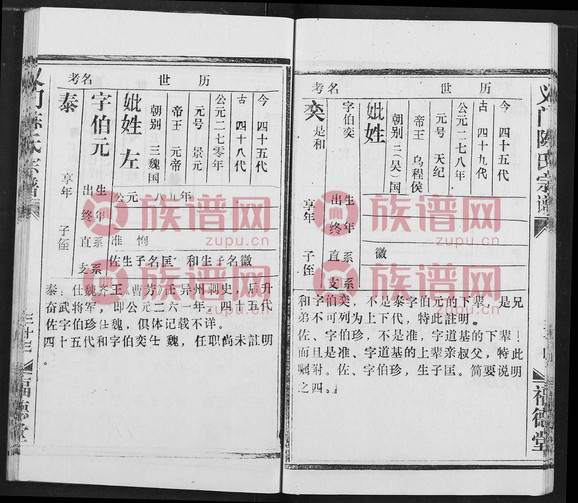 历世
名考
今 四十五代
古 四十八代
公元二七零年
元号 景元
帝王 元帝
朝别 三魏国
妣姓 左
字伯元
泰
享年
子侄
出生
终年
直系
支系
公元 八五年
准 恂
佐生子名匡 和生子名徽
泰：仕魏齐王《曹芳》壬异州刺史，后升
奋武将军，即公元二六一年，四十五代
佐字伯珍仕魏，俱体记载不详。
四十五代和字伯奕仕魏，任职尚未註明
福德堂
历世
名考
今 四十五代
古 四十九代
公元二七八年
元号 天纪
帝王 乌程侯
朝别 三(吴)国
妣姓
字伯奕
奕
是和
享年
子侄
出生
终年
直系
支系
徽
和字伯奕，不是泰字伯元的下辈，是兄
弟不可列为上下代，特此註明。
佐、字伯珍，不是准、字道基的下辈！
而且是准、字道基的上辈亲叔父，特此
嘱附。佐、字伯珍，生子匡。简要说明
之四。
义门陈氏宗谱
福德堂
族谱网
zupu.cn
族谱网
zupu.cn
族谱网
zupu.cn
族谱网
zupu.cn